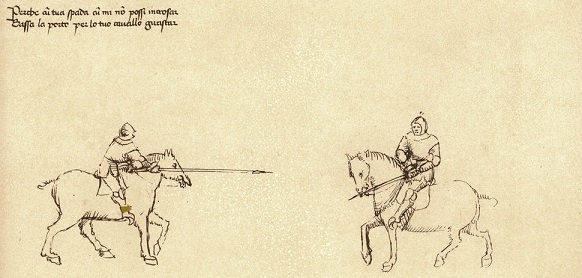 Perche cū tua spada cū mi nō possi incrosar
Bassa la porto per lo tuo cavallo guastar